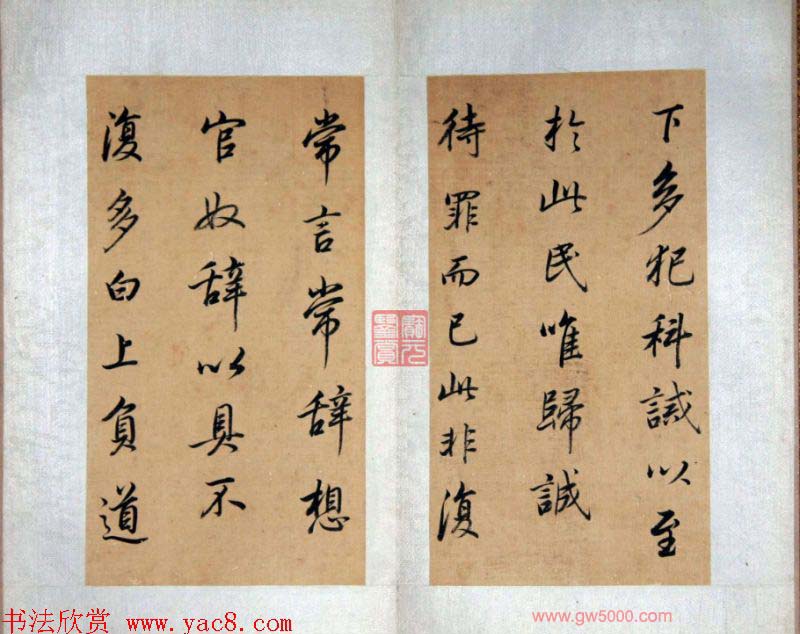 下多犯科誠以至
於此民唯歸誠
待罪而已此非復
常言常辞想
官奴辞以具不
復多白上負道
書法欣赏 www.yac8.com
www.gw5000.com